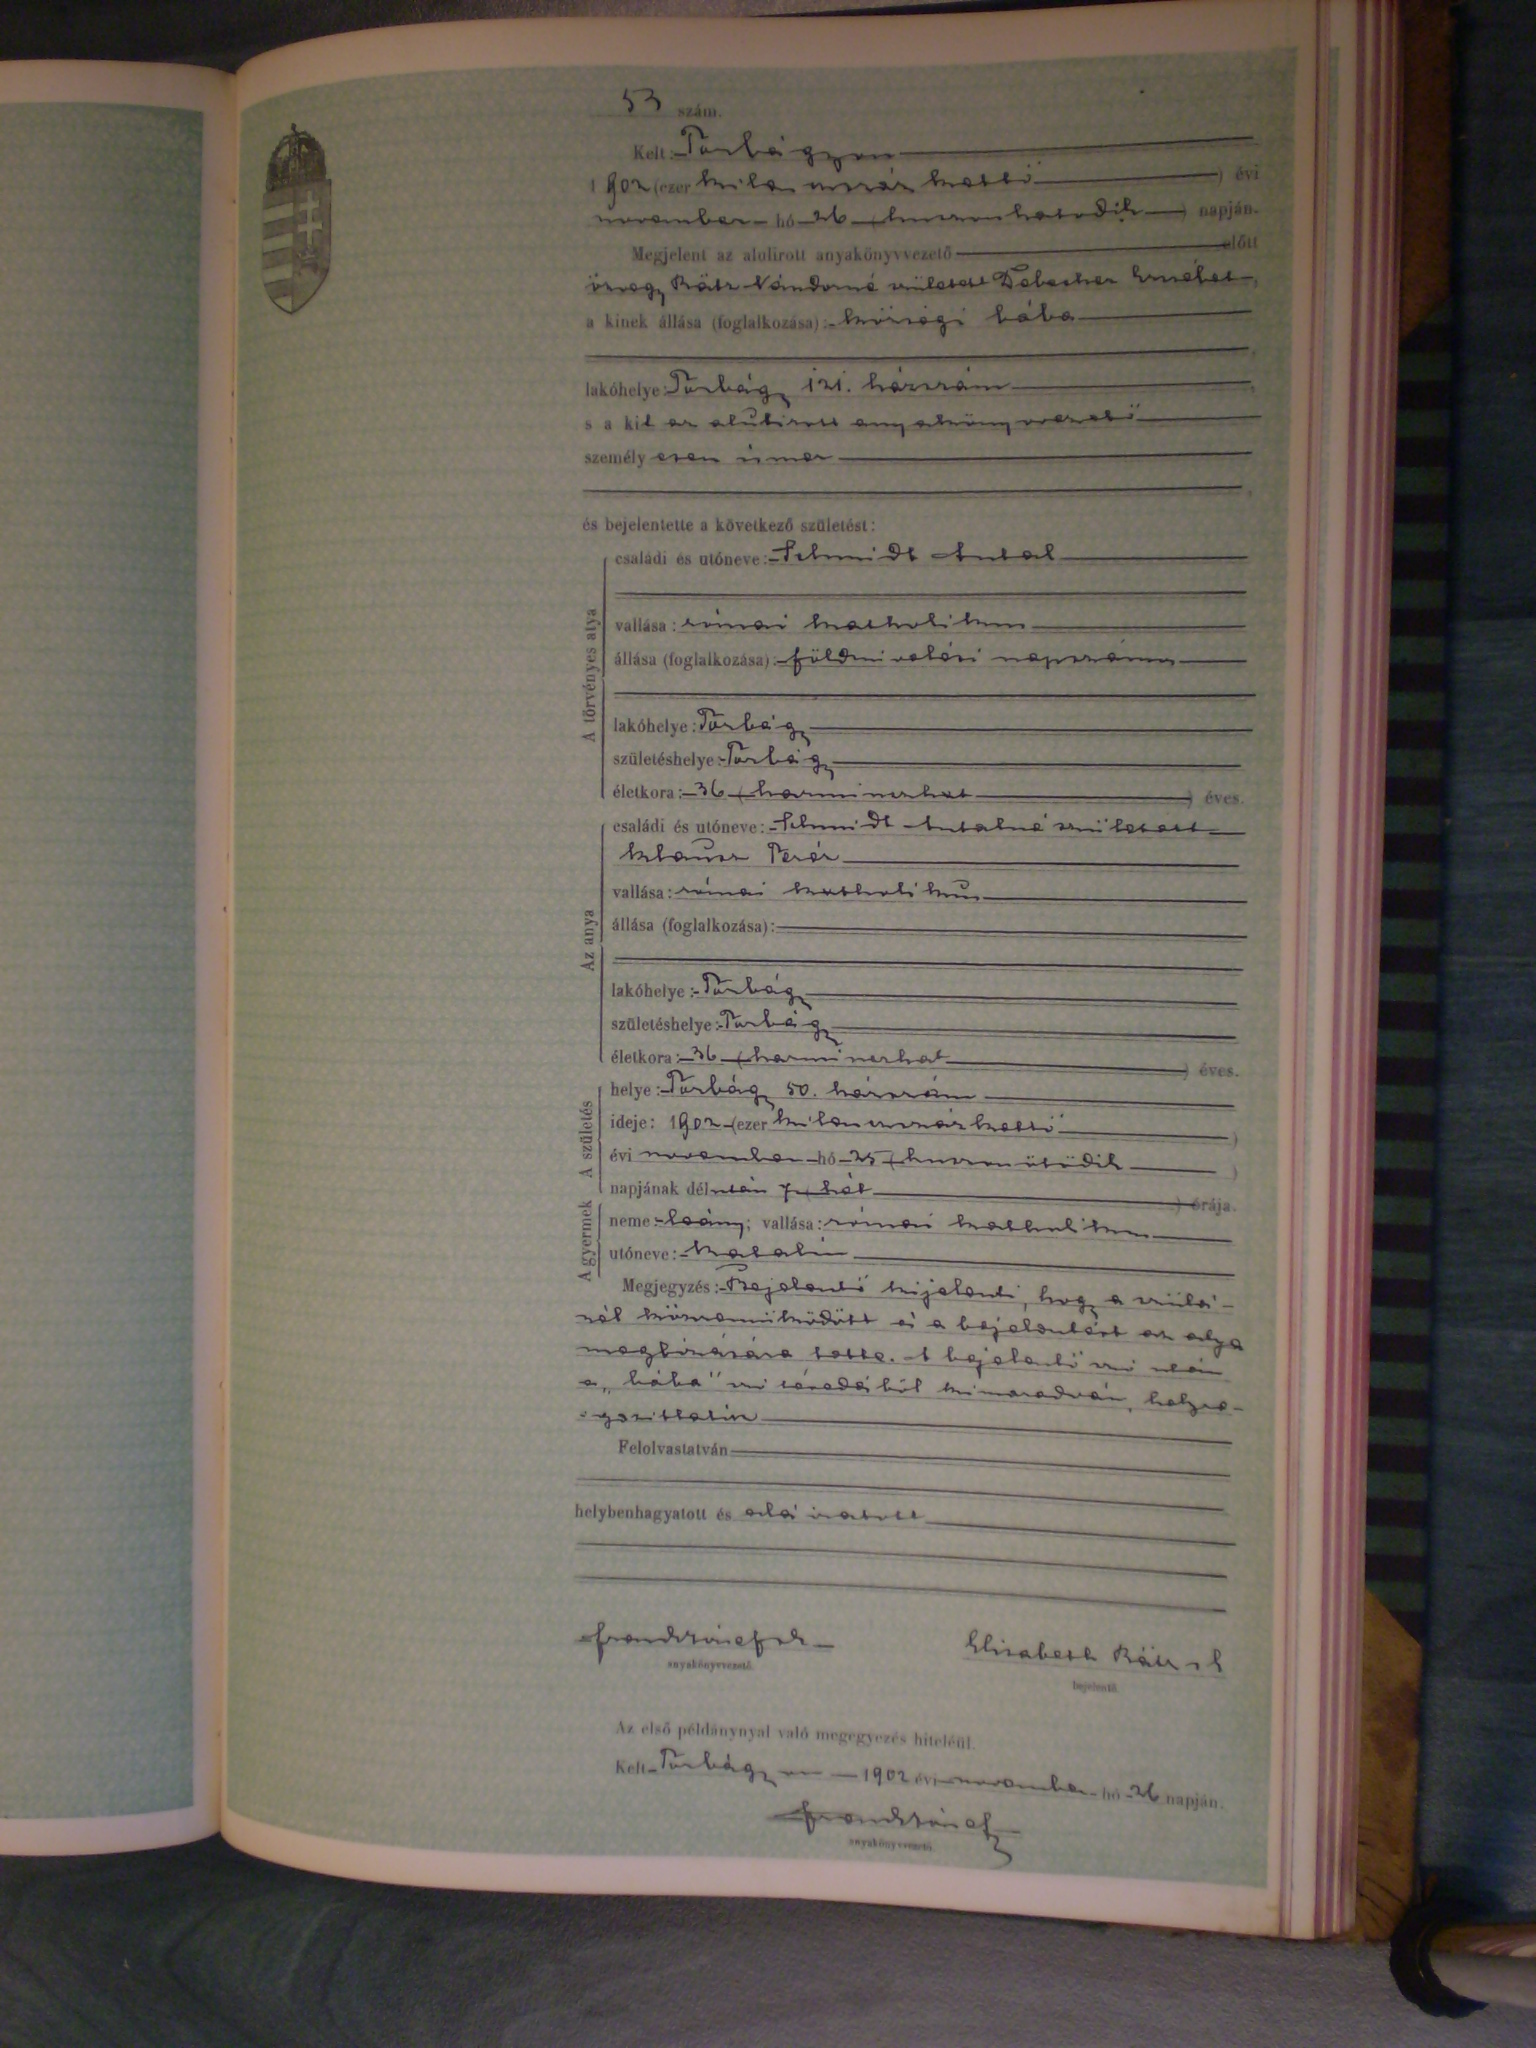 53 szám.
Kelt: Torbágyon
1902 (ezer kilencszáz kettő) évi
november hó 26 (huszonhatodik) napján.
Megjelent az alolirott anyakönyvvezető előtt
özvegy Rátz Nándorné született Erzsébet,
a kinek állása (foglalkozása): községi bába
lakóhelye: Torbágy 121. házszám
s a kit az alulirott anyakönyvvezető
személyesen ismer
és bejelentette a következő születést:
A törvényes atya
családi és utóneve: Schmidt Antal
vallása: római katholikus
állása (foglalkozása): földmivelési napszámos
lakóhelye: Torbágy
születéshelye: Torbágy
életkora: 36 (harminczhat) éves.
Az anya
családi és utóneve: Schmidt Antalné született
Klausz Teréz
vallása: római katholikus
állása (foglalkozása):
lakóhelye: Torbágy
születéshelye: Torbágy
életkora: 36 (harminczhat) éves.
A születés
helye: Torbágy 50. házszám
ideje: 1902 (ezer kilenczszáz kettő)
évi november hó 25 (huszonötödik)
napjának délután 7 (hét) órája.
A gyermek
neme: leány; vallása: római katholikus
utóneve: Katalin
Megjegyzés: Bejelentő kijelenti, hogy a szülés-
nél közreműködött és a bejelentést az atya
megbizására tette. A bejelentő szó után
a „bába" szó tévedésből kimaradván, helyre-
igazittatik
Felolvastatván
helybenhagyatott és aláiratott
anyakönyvvezető.
Elisabeth Rätz
bejelentő.
Az első példánynyal való megegyezés hiteléül.
Kelt Torbágyon 1902 évi november hó 26 napján.
anyakönyvvezető.